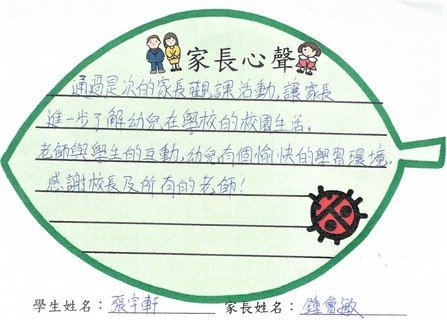 家長心聲
通過是次的家長觀課活動,讓家長
進一步了解幼兒在學校的校園生活,
老師與學生的互動,幼兒有個愉快的學習環境,
感謝校長及所有的老師!
學生姓名:張宇軒 家長姓名:鍾會敏